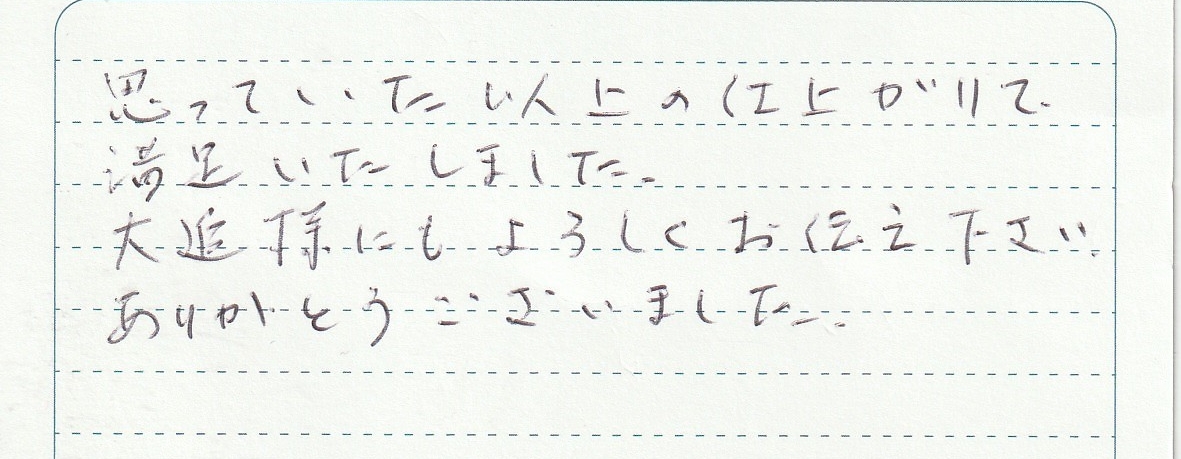 思っていた以上の仕上がりで
満足いたしました。
大進様にもよろしくお伝え下さい。
ありがとうございました。